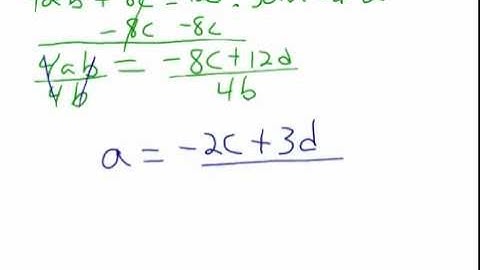 -8c -8c
4ab = -8c+12d
4b 4b
a = -2c+3d